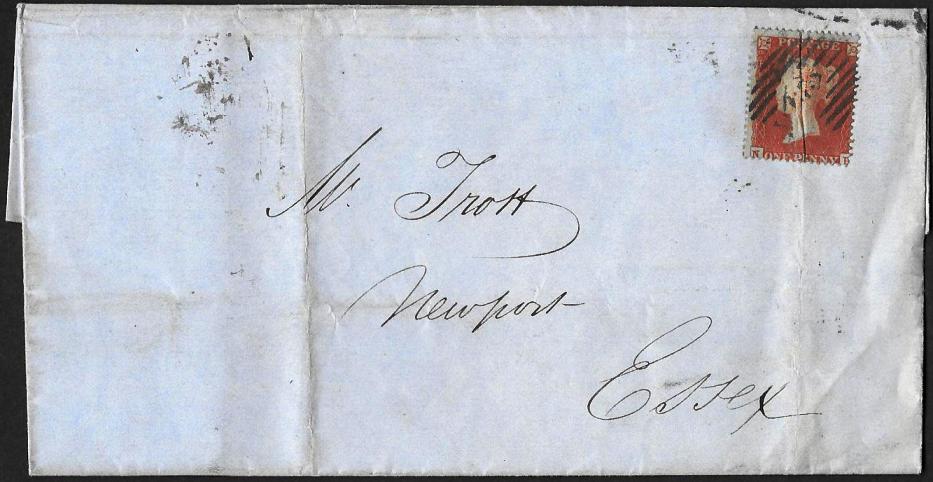 POSTAGE
ONE PENNY
Mr. Trott
Newport
Essex